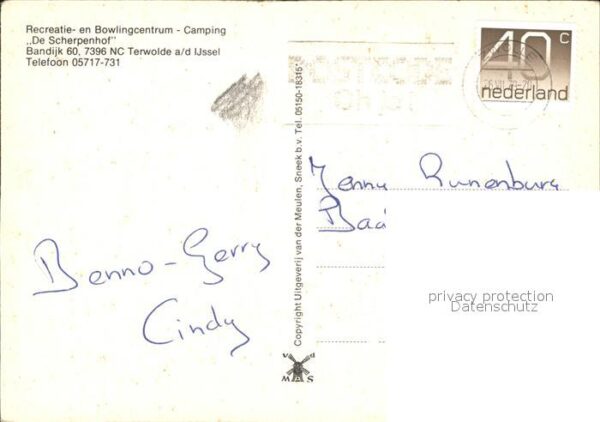 Recreatie- en Bowlingcentrum - Camping
„De Scherpenhof"
Bandijk 60, 7396 NC Terwolde a/d IJssel
Telefoon 05717-731
40 c
nederland
Copyright Uitgeverij van der Meulen, Sneek b.v. Tel. 05150-18315*
Jenny Runenburg
Baa
Benno - Gerry
Cindy
privacy protection
Datenschutz
v d
M S